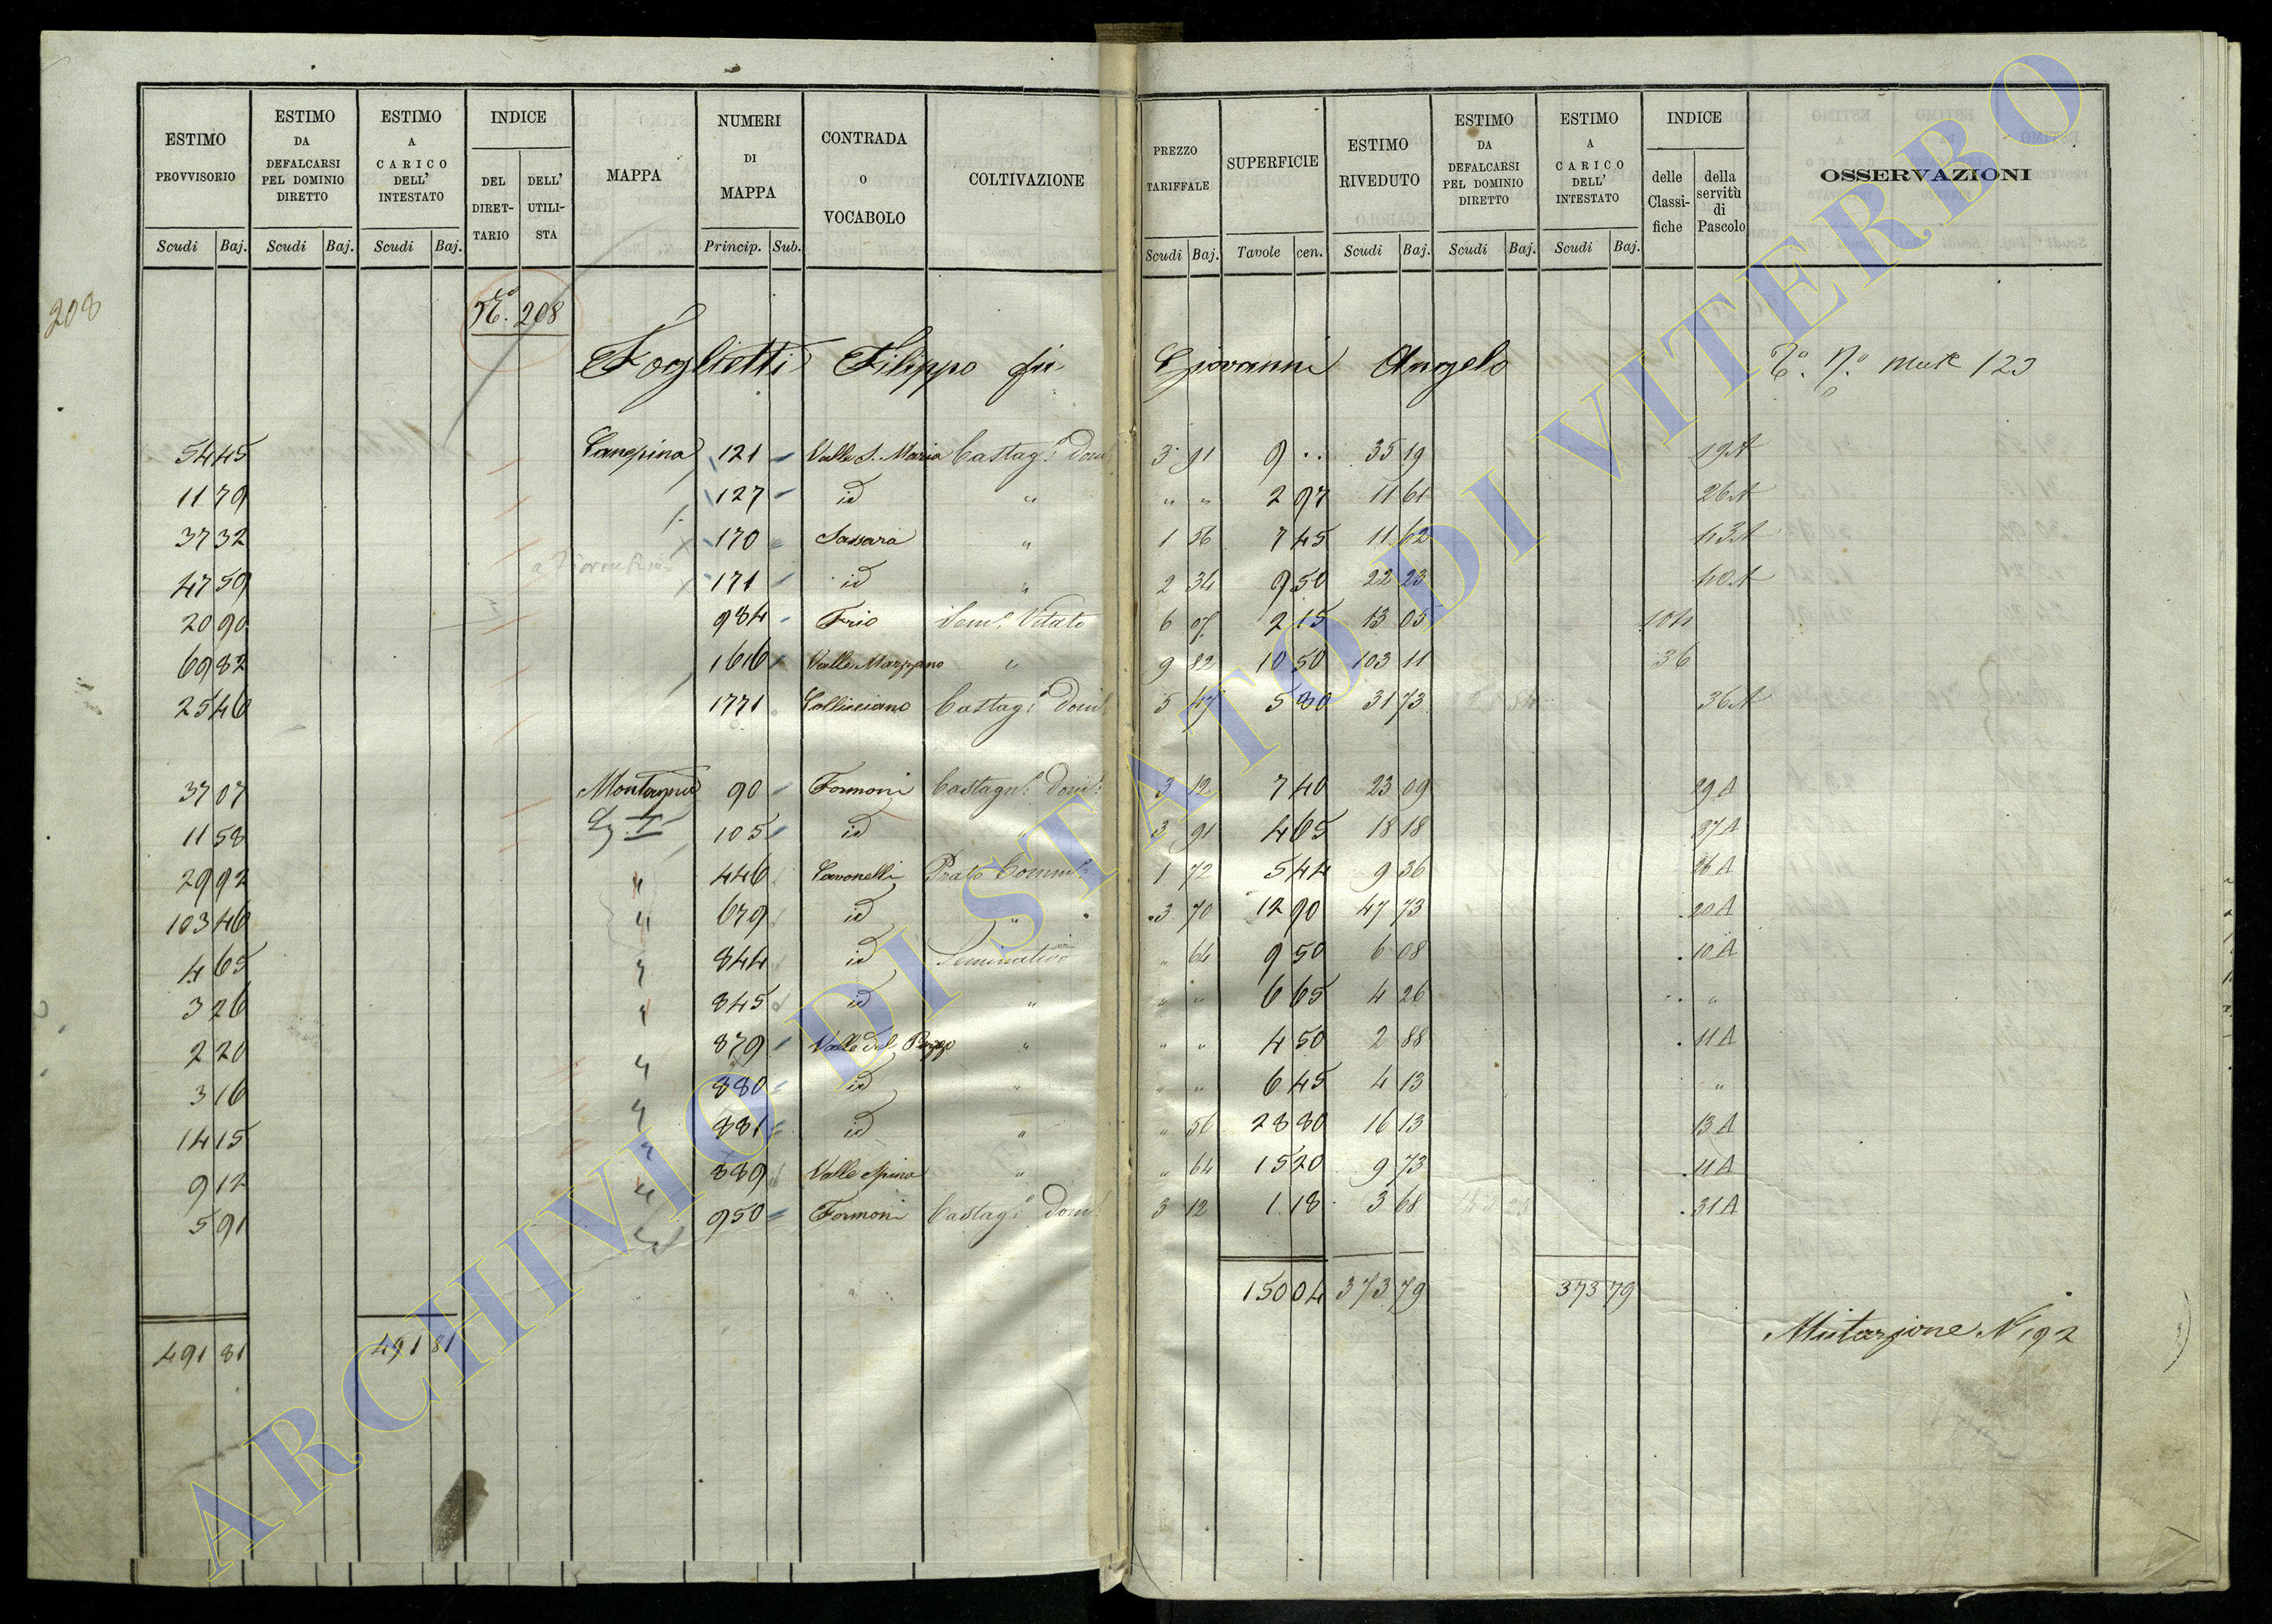 ESTIMO PROVVISORIO | ESTIMO DA DEFALCARSI PEL DOMINIO DIRETTO | ESTIMO A CARICO DELL' INTESTATO | INDICE | MAPPA | NUMERI DI MAPPA | CONTRADA O VOCABOLO | COLTIVAZIONE | PREZZO TARIFFALE | SUPERFICIE | ESTIMO RIVEDUTO | ESTIMO DA DEFALCARSI PEL DOMINIO DIRETTO | ESTIMO A CARICO DELL' INTESTATO | INDICE | OSSERVAZIONI
DEL DIRETTARIO | DELL' UTILISTA | delle Classifiche | della servitù di Pascolo
Scudi Baj. Scudi Baj. Scudi Baj. Princip. Sub. Scudi Baj. Tavole cen. Scudi Baj. Scudi Baj. Scudi Baj.
208
No. 208
Foglietti Filippo fu Giovanni Angelo 123
54 45 Canepina 121 Valle S. Maria Castag: Dom 3 91 9 .. 35 19 19A
11 79 127 id " " " 2 97 11 61 26A
37 32 170 Sassara " 1 56 7 45 11 62 43A
47 59 171 id " 2 34 9 50 22 23 40A
20 90 984 Frio Sem. Vitato 6 07 2 15 13 05
69 82 1616 Valle Mazzano " 9 82 10 50 103 11 36
25 46 1771 Collicciano Castag: Dom 5 47 5 80 31 73 36A
37 07 90 Formoni Castagn: Dom: 3 12 7 40 23 09 29A
11 58 105 id " 3 91 4 65 18 18 27A
29 92 " 446 Cavonelli Prato 1 72 5 44 9 36 26A
103 46 " 679 id " 3 70 12 90 47 73 20A
4 65 " 844 id Seminativo " 64 9 50 6 08 10A
3 26 " 845 id " " " 6 65 4 26 "
2 20 879 Valle del Pozzo " " " 4 50 2 88 11A
3 16 " 880 id " " " 6 45 4 13 "
14 15 " 881 id " " 56 28 80 16 13 13A
9 12 " 889 Valle Spina " " 64 15 20 9 73 11A
5 91 " 950 Formoni Castag: Dom 3 12 1 18 3 68 31A
150 04 373 79 373 79
491 81 491 81
Mutazione N 192
ARCHIVIO DI STATO DI VITERBO